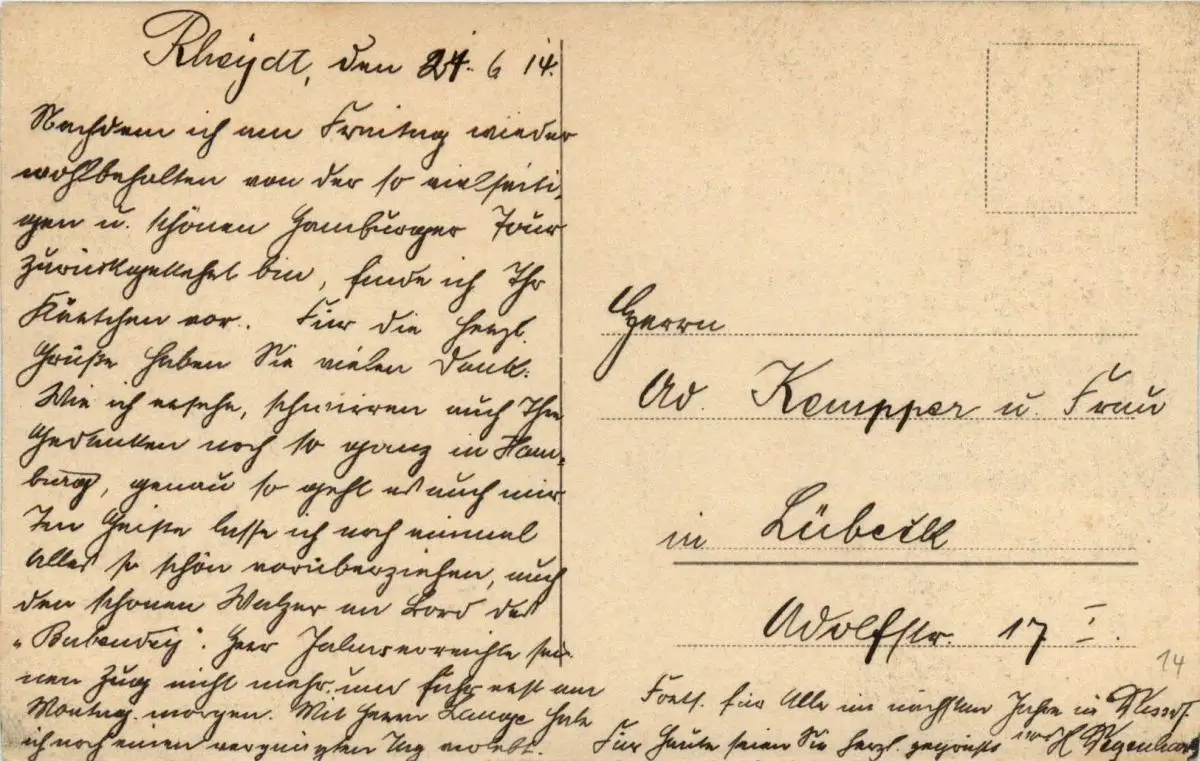 Rheydt, den 24. 6 14.
Nachdem ich am Freitag wieder
wohlbehalten von der so vielseiti-
gen u. schönen Hamburger Tour
zurückgekehrt bin, finde ich Ihr
Kärtchen vor. Für die herzl.
Grüße haben Sie vielen Dank.
Wie ich ersehe, schwirren auch Ihre
Gedanken noch so ganz in Ham-
burg, genau so geht es auch mir.
Im Geiste lasse ich noch einmal
Alles so schön vorüberziehen, auch
den schönen Walzer an Bord des
"Bubendey". Herr erreichte sei-
nen Zug nicht mehr und fuhr erst am
Montag morgen. Mit Herrn Lange habe
ich noch einen vergnügten Tag verlebt.
Herrn
Ad. Kempper u. Frau
in Lübeck
Adolfstr. 17 I.
14
Forts. für Alle im nächsten Jahre in
Für Heute seien Sie herzl. gegrüßt